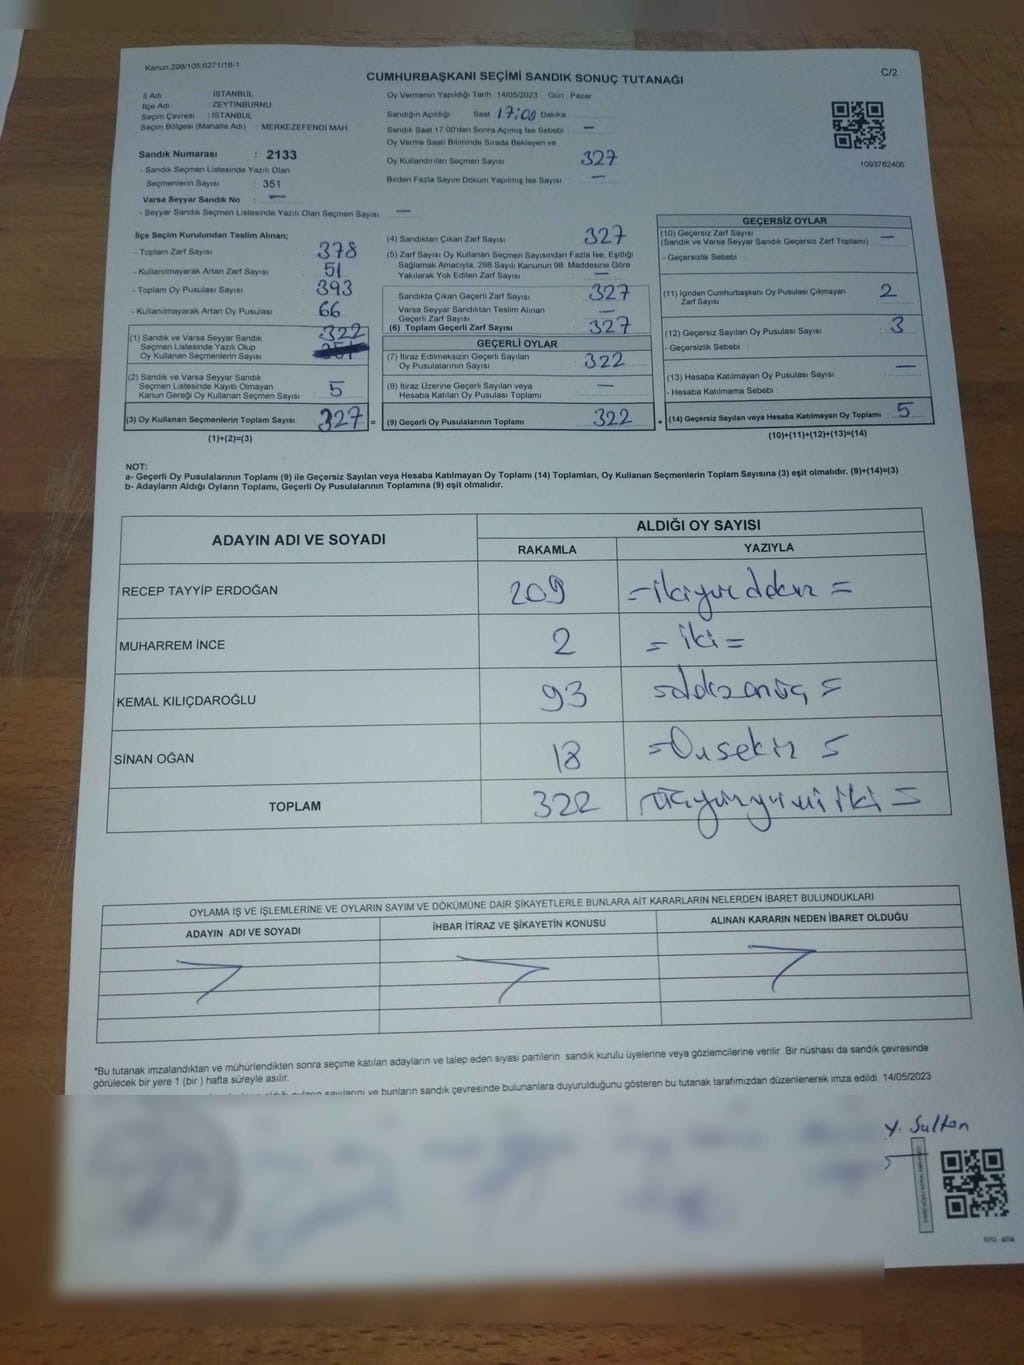 Kanun:298/105;6271/18-1
CUMHURBAŞKANI SEÇİMİ SANDIK SONUÇ TUTANAĞI
C/2
İl Adı : İSTANBUL
İlçe Adı : ZEYTİNBURNU
Seçim Çevresi : İSTANBUL
Seçim Bölgesi (Mahalle Adı) : MERKEZEFENDİ MAH.
Oy Vermenin Yapıldığı Tarih : 14/05/2023 Gün : Pazar
Sandığın Açıldığı Saat 17:00 Dakika
Sandık Saat 17:00'den Sonra Açılmış İse Sebebi : —
Oy Verme Saati Bitiminde Sırada Bekleyen ve
Oy Kullandırılan Seçmen Sayısı : 327
Birden Fazla Sayım Döküm Yapılmış İse Sayısı : —
1093782406
Sandık Numarası : 2133
- Sandık Seçmen Listesinde Yazılı Olan
Seçmenlerin Sayısı : 351
Varsa Seyyar Sandık No : —
- Seyyar Sandık Seçmen Listesinde Yazılı Olan Seçmen Sayısı: —
İlçe Seçim Kurulundan Teslim Alınan;
- Toplam Zarf Sayısı : 378
- Kullanılmayarak Artan Zarf Sayısı : 51
- Toplam Oy Pusulası Sayısı : 393
- Kullanılmayarak Artan Oy Pusulası : 66
(1) Sandık ve Varsa Seyyar Sandık
Seçmen Listesinde Yazılı Olup
Oy Kullanan Seçmenlerin Sayısı : 322
(2) Sandık ve Varsa Seyyar Sandık
Seçmen Listesinde Kayıtlı Olmayan
Kanun Gereği Oy Kullanan Seçmen Sayısı : 5
(3) Oy Kullanan Seçmenlerin Toplam Sayısı : 327
(1)+(2)=(3)
(4) Sandıktan Çıkan Zarf Sayısı : 327
(5) Zarf Sayısı Oy Kullanan Seçmen Sayısından Fazla İse, Eşitliği
Sağlamak Amacıyla, 298 Sayılı Kanunun 98. Maddesine Göre
Yakılarak Yok Edilen Zarf Sayısı : —
Sandıkta Çıkan Geçerli Zarf Sayısı : 327
Varsa Seyyar Sandıktan Teslim Alınan
Geçerli Zarf Sayısı : —
(6) Toplam Geçerli Zarf Sayısı : 327
GEÇERLİ OYLAR
(7) İtiraz Edilmeksizin Geçerli Sayılan
Oy Pusulalarının Sayısı : 322
(8) İtiraz Üzerine Geçerli Sayılan veya
Hesaba Katılan Oy Pusulası Toplamı : —
= (9) Geçerli Oy Pusulalarının Toplamı : 322
GEÇERSİZ OYLAR
(10) Geçersiz Zarf Sayısı
(Sandık ve Varsa Seyyar Sandık Geçersiz Zarf Toplamı) : —
- Geçersizlik Sebebi :
(11) İçinden Cumhurbaşkanı Oy Pusulası Çıkmayan
Zarf Sayısı : 2
(12) Geçersiz Sayılan Oy Pusulası Sayısı : 3
- Geçersizlik Sebebi :
(13) Hesaba Katılmayan Oy Pusulası Sayısı : —
- Hesaba Katılmama Sebebi :
+ (14) Geçersiz Sayılan veya Hesaba Katılmayan Oy Toplamı : 5
(10)+(11)+(12)+(13)=(14)
NOT:
a- Geçerli Oy Pusulalarının Toplamı (9) ile Geçersiz Sayılan veya Hesaba Katılmayan Oy Toplamı (14) Toplamları, Oy Kullanan Seçmenlerin Toplam Sayısına (3) eşit olmalıdır. (9)+(14)=(3)
b- Adayların Aldığı Oyların Toplamı, Geçerli Oy Pusulalarının Toplamına (9) eşit olmalıdır.
ADAYIN ADI VE SOYADI
ALDIĞI OY SAYISI
RAKAMLA YAZIYLA
RECEP TAYYİP ERDOĞAN 209 =ikiyüzdokuz=
MUHARREM İNCE 2 =iki=
KEMAL KILIÇDAROĞLU 93 =doksanüç=
SİNAN OĞAN 18 =Onsekiz=
TOPLAM 322 üçyüzyirmiiki=
OYLAMA İŞ VE İŞLEMLERİNE VE OYLARIN SAYIM VE DÖKÜMÜNE DAİR ŞİKAYETLERLE BUNLARA AİT KARARLARIN NELERDEN İBARET BULUNDUKLARI
ADAYIN ADI VE SOYADI İHBAR İTİRAZ VE ŞİKAYETİN KONUSU ALINAN KARARIN NEDEN İBARET OLDUĞU
*Bu tutanak imzalandıktan ve mühürlendikten sonra seçime katılan adayların ve talep eden siyasi partilerin sandık kurulu üyelerine veya gözlemcilerine verilir. Bir nüshası da sandık çevresinde
görülecek bir yere 1 (bir ) hafta süreyle asılır.
oyların sayılarını ve bunların sandık çevresinde bulunanlara duyurulduğunu gösteren bu tutanak tarafımızdan düzenlenerek imza edildi. 14/05/2023
Y. Sultan